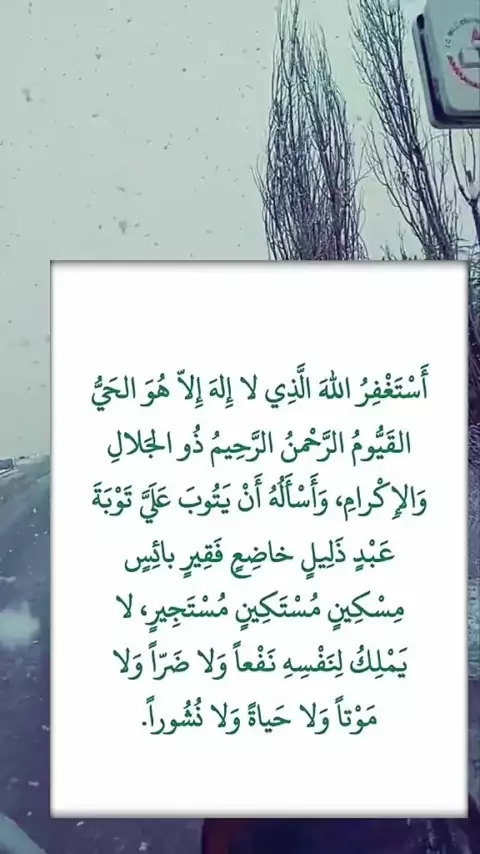 أَسْتَغْفِرُ اللهَ الَّذِي لا إِلهَ إِلاّ هُوَ الحَيُّ
القَيُّومُ الرَّحْمنُ الرَّحِيمُ ذُو الجَلالِ
وَالإِكْرامِ، وَأَسْأَلُهُ أَنْ يَتُوبَ عَلَيَّ تَوْبَةَ
عَبْدٍ ذَلِيلٍ خاضِعٍ فَقِيرٍ بائِسٍ
مِسْكِينٍ مُسْتَكِينٍ مُسْتَجِيرٍ، لا
يَمْلِكُ لِنَفْسِهِ نَفْعاً وَلا ضَرّاً وَلا
مَوْتاً وَلا حَياةً وَلا نُشُوراً.